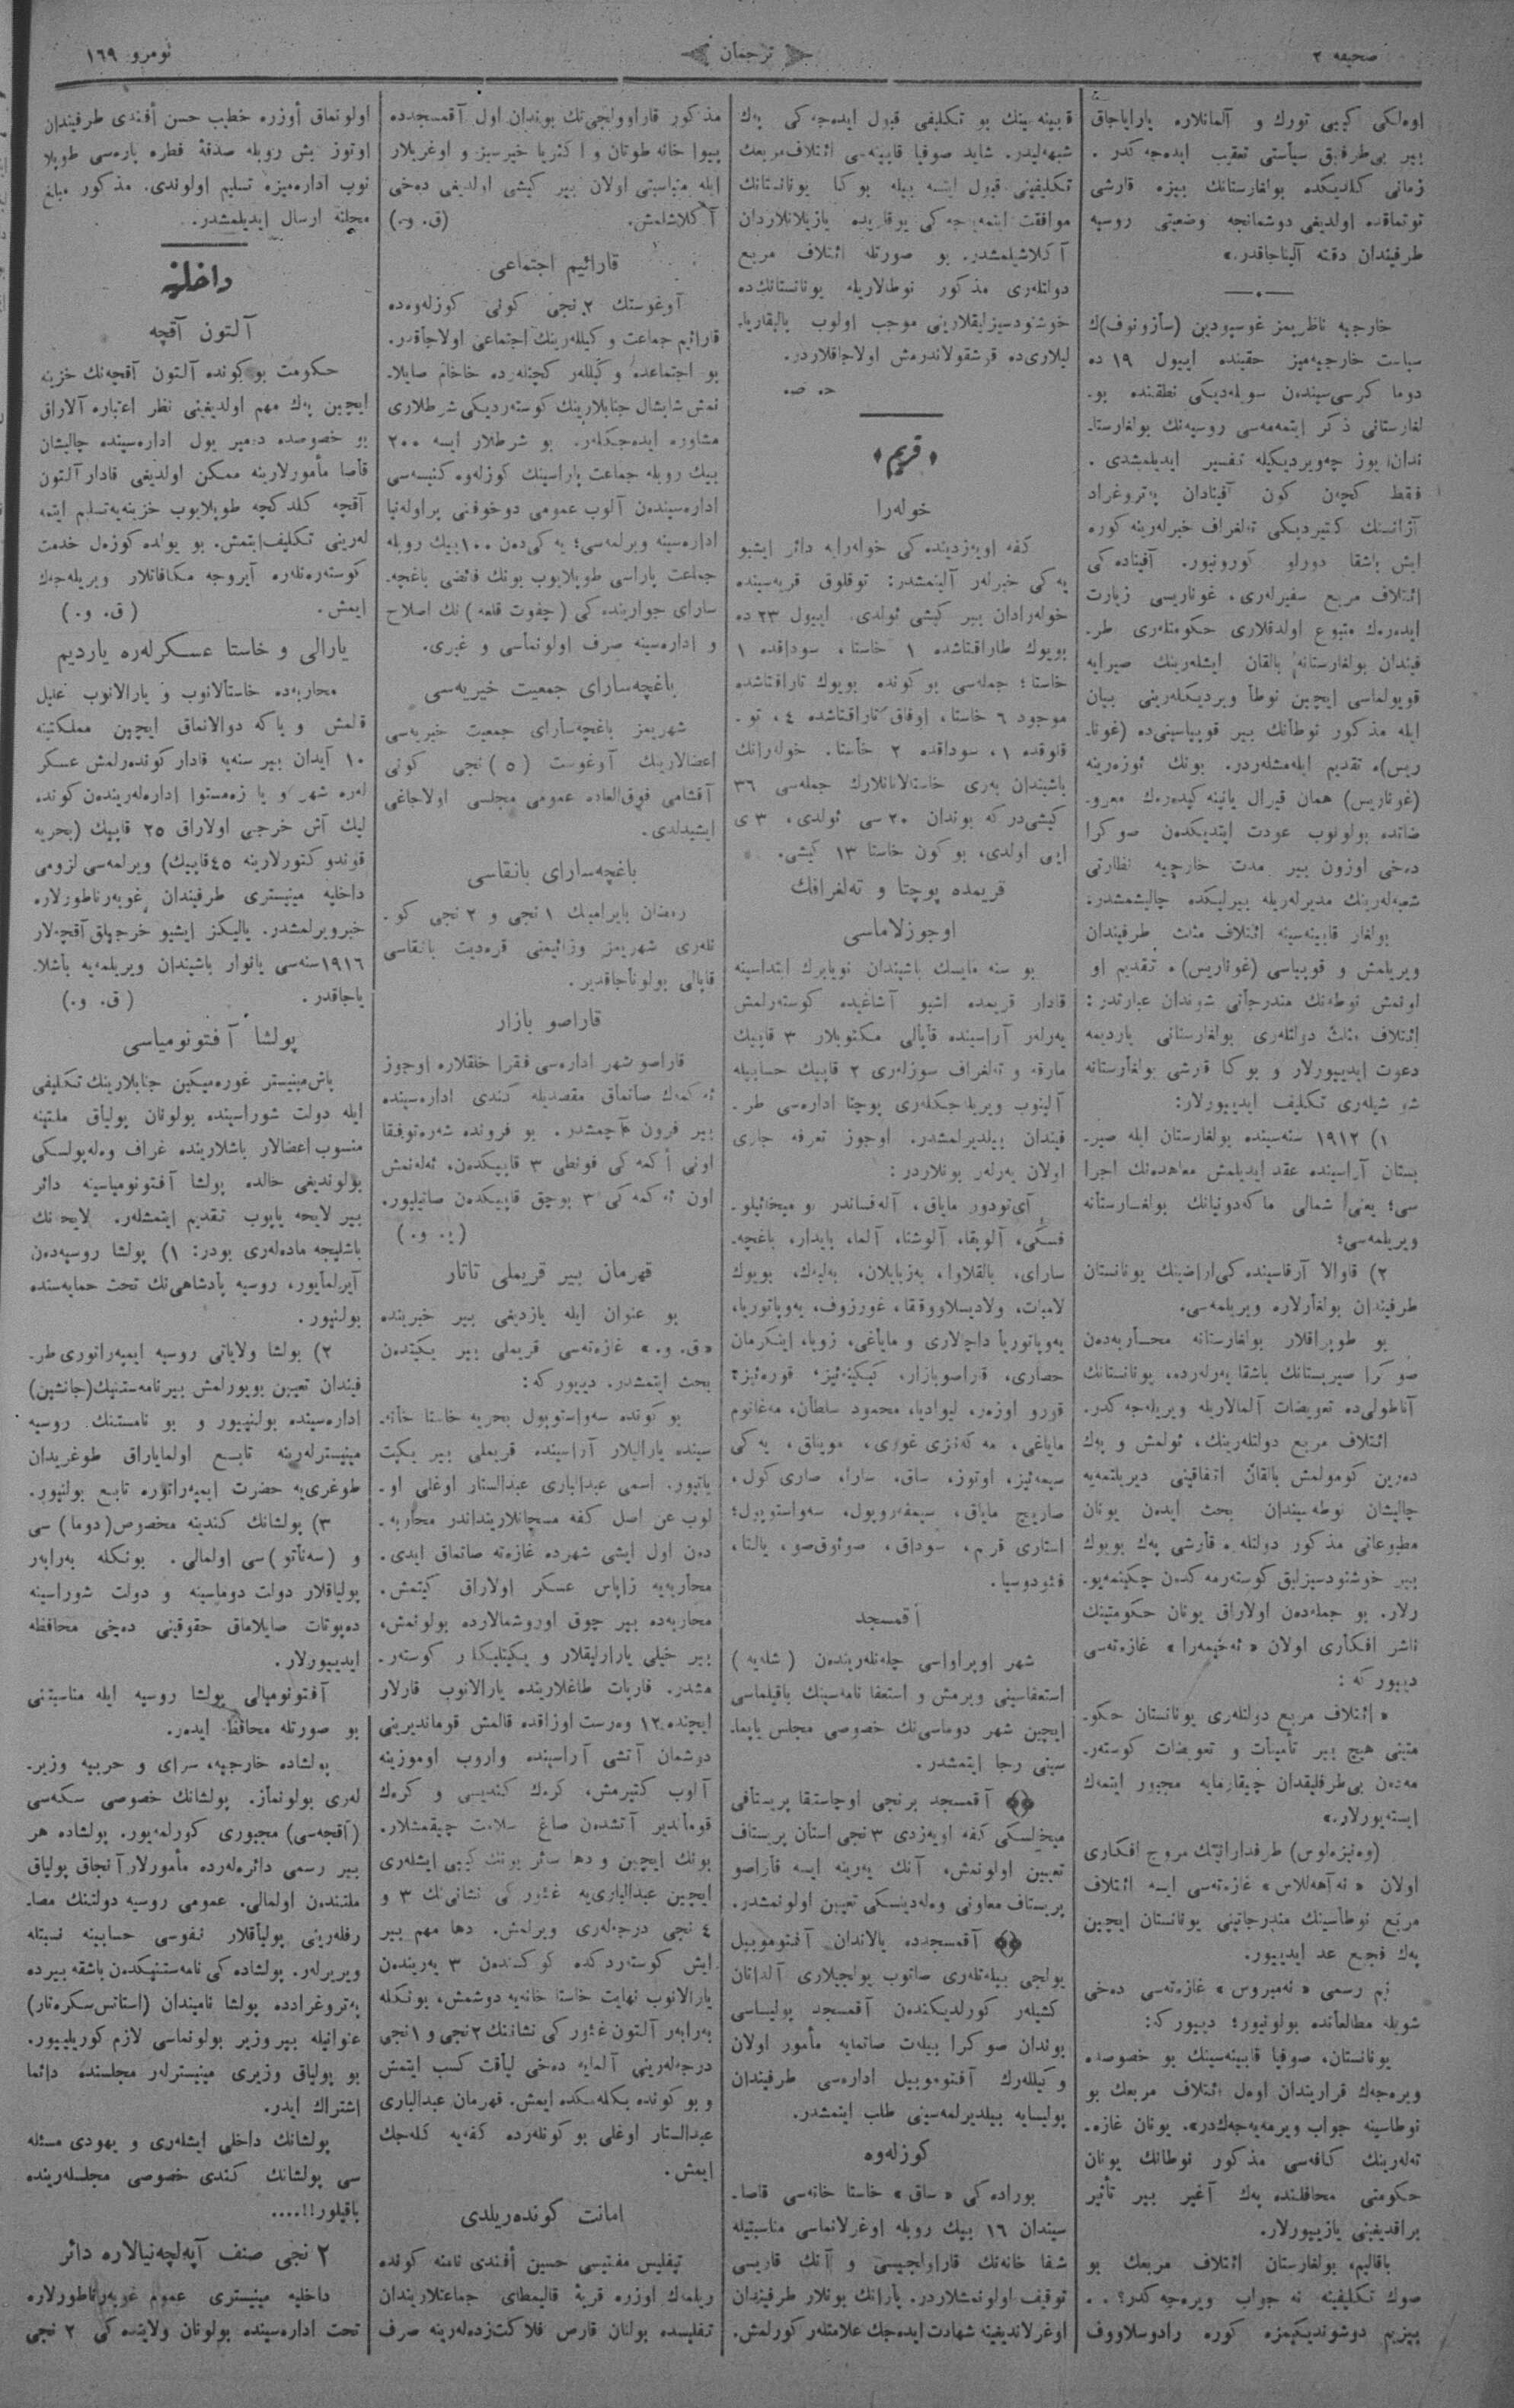 صحیفه ۲
ترجمان
نومرو ۱٦۹
اوەلکی کیبی تورك و آلمانلاره یارایاجاق
بیر بی‌طرفلق سیاستی تعقیب ایدەجەکدر .
زمانی کلدیکده بولغارستانك بیزه قارشی
توتماقده اولدیغی دوشمانجه وضعیتی روسیه
طرفیندان دقته آلیناجاقدر.»
خارجیه ناظریمز غوسپودین (سازونوف)ك
سیاست خارجیه‌میز حقینده اییول ۱۹ ده
دوما کرسی‌سیندەن سویلەدیکی نطقنده بو-
لغارستانی ذکر ایتمەمەسی روسیەنك بولغارستا-
ندان یوز چەویردیکیله تفسیر ایدیلمشدی .
فقط کچەن کون آفینادان پەتروغراد
آژانسنك کتیردیکی تەلغراف خبرلەرینه کوره
ایش باشقا دورلو کورونیور. آفینادەکی
ائتلاف مربع سفیرلەری، غوناریسی زیارت
ایدەرەك متبوع اولدقلاری حکومتلەری طر-
فیندان بولغارستانه بالقان ایشلەرینك صیرایه
قویولماسی ایچین نوطا ویردیکلەرینی بیان
ایله مذکور نوطانك بیر قوپیاسینی‌ده (غونا-
ریس)ە تقدیم ایلەمشلەردر. بونك ئوزەرینه
(غوناریس) همان قیرال یانینه کیدەرەك معرو-
ضاتده بولونوب عودت ایتدیکدەن صوکرا
دەخی اوزون بیر مدت خارجیه نظارتی
شعبەلەرینك مدیرلەریله بیرلیکده چالیشمشدر.
بولغار قابینەسینه ائتلاف مثلث طرفیندان
ویریلمش و قوپیاسی (غوناریس)ە تقدیم او
لونمش نوطەنك مندرجاتی شوندان عبارتدر:
ائتلاف مثلث دولتلەری بولغارستانی یاردیمه
دعوت ایدییورلار و بوکا قارشی بولغارستانه
شو شیلەری تکلیف ایدییورلار:
۱) ۱۹۱۲ سنەسینده بولغارستان ایله صیر-
بستان آراسینده عقد ایدیلمش معاهدەنك اجرا
سی؛ یعنی شمالی ماکەدونیانك بولغارستانه
ویریلمەسی؛
۲) قاوالا آرقاسیندەکی اراضینك یونانستان
طرفیندان بولغارلاره ویریلمەسی.
بو طوپراقلار بولغارستانه محاربەدەن
صوکرا صیربستانك باشقا یەرلەرده، یونانستانك
آناطولی‌ده تعویضات آلمالاریله ویریلەجەکدر.
ائتلاف مربع دولتلەرینك، ئولمش و پەك
دەرین کومولمش بالقان اتفاقینی دیریلتمەیه
چالیشان نوطەسیندان بحث ایدەن یونان
مطبوعاتی مذکور دولتلەرە قارشی پەك بویوك
بیر خوشنودسیزلیق کوستەرمەکدەن چکینمەیو-
رلار. بو جملەدەن اولاراق یونان حکومتینك
ناشر افکاری اولان «ئەخیمەرا» غازەتەسی
دییور که :
«ائتلاف مربع دولتلەری یونانستان حکو-
متینی هیچ بیر تأمینات و تعویضات کوستەر-
مەدەن بی‌طرفلیقدان چیقارمایه مجبور ایتمەك
ایستەیورلار.»
(وەنیزەلوس) طرفدارانینك مروج افکاری
اولان «ئەآهەللاس» غازەتەسی ایسه ائتلاف
مربع نوطاسینك مندرجاتینی یونانستان ایچین
پەك فجیع عد ایدییور.
نیم رسمی «ئەمبروس» غازەتەسی دەخی
شویله مطالعاتده بولونیور؛ دییور که:
یونانستان، صوفیا قابینەسینك بو خصوصده
ویرەجەك قراریندان اوەل ائتلاف مربعك بو
نوطاسینه جواب ویرمەیەجەكدر». یونان غازە-
تەلەرینك کافەسی مذکور نوطانك یونان
حکومتی محافلنده پەك آغیر بیر تأثیر
براقدیغینی یازییورلار.
باقالیم، بولغارستان ائتلاف مربعك بو
صوك تکلیفینه نه جواب ویرەجەکدر؟ . .
بیزیم دوشوندیکیمزه کوره رادوسلاووف
قابینەسینك بو تکلیفی قبول ایدەجەکی پەك
شبهەلیدر. شاید صوفیا قابینەسی ائتلاف‌مربعك
تکلیفینی قبول ایتسه بیله بوکا یونانستانك
موافقت ایتمەیەجەکی یوقاریده یازیلانلاردان
آکلاشیلمشدر. بو صورتله ائتلاف مربع
دولتلەری مذکور نوطالاریله یونانستانك‌ده
خوشنودسیزلیقلارینی موجب اولوب یالیقاریا-
لیلاری‌ده قرشقولاندرمش اولاجاقلاردر.
ح. ض.
«قریم»
خولەرا
کفه اویەزدیندەکی خولەرایه دائر ایشبو
یەکی خبرلەر آلینمشدر: توقلوق قریەسینده
خولەرادان بیر کیشی ئولدی. اییول ۲۳ ده
بویوك طاراقتاشده ۱ خاستا، سوداقده ۱
خاستا؛ جملەسی بوکونده بویوك تاراقتاشده
موجود ٦ خاستا، اوفاق تاراقتاشده ٤، تو-
قلوقده ۱، سوداقده ۲ خاستا. خولەرانك
باشیندان بەری خاستالانانلارك جملەسی ۳٦
کیشی‌درکه بوندان ۲۰ سی ئولدی، ۳ ی
ایی اولدی، بوکون خاستا ۱۳ کیشی.
قریمده پوچتا و تەلغرافك
اوجوزلاماسی
بو سنه مایسك باشیندان نویابرك ابتداسینه
قادار قریمده اشبو آشاغیده کوستەرلمش
یەرلەر آراسینده قاپالی مکتوبلار ۳ قاپیك
مارقه و تەلغراف سوزلەری ۲ قاپیك حسابیله
آلینوب ویریلەجکلەری پوچتا ادارەسی طر-
فیندان بیلدیرلمشدر. اوجوز تعرفه جاری
اولان یەرلەر بونلاردر:
آی‌تودور مایاق، آلەقساندر و میخائیلو-
فسکی، آلوپقا، آلوشتا، آلما، بایدار، باغچه-
سارای، بالقلاوا، بەزیابلان، بەلبەك، بویوك
لامبات، ولادیسلاووققا، غورزوف، یەوپاتوریا،
یەوپاتوریا داچالاری و مایاغی، زویا، اینکرمان
حصاری، قراصوبازار، کیکئەنیز، قورەئیز؛
قورو اوزەر، لیوادیا، محمود سلطان، مەغانوم
مایاغی، مەکەنزی غوری، مویناق، یەکی
سیمەئیز، اوتوز، ساق، سارا، صاری کول،
صاریچ مایاق، سیمفەروپول، سەواستوپول؛
استاری قرم، سوداق، صوئوق‌صو، یالتا،
فئودوسیا.
آقمسجد
شهر اوپراواسی چلەنلەریندەن (شلەیه)
استعفاسینی ویرمش و استعفا نامەسینك باقیلماسی
ایچین شهر دوماسی‌نك خصوصی مجلس یاپما-
سینی رجا ایتمشدر.
آقمسجد برنجی اوچاستقا پریستافی
میخالسکی کفه اویەزدی ۳ نجی استان پریستاف
تعیین اولونمش، آنك یەرینه ایسه قاراصو
پریستاف معاونی وەلەدینسکی تعیین اولونمشدر.
آقمسجدده یالاندان آفتوموبیل
یولجی بیلەتلەری صاتوب یولجیلاری آلدانان
کشیلەر کورلدیکندەن آقمسجد پولیساسی
بوندان صوکرا بیلەت صاتمایه مأمور اولان
وکیللەرك آفتوموبیل ادارەسی طرفیندان
پولیسایه بیلدیرلمەسینی طلب ایتمشدر.
کوزلەوه
بورادەکی «ساق» خاستا خانەسی قاصا-
سیندان ۱٦ بیك روبله اوغرلانماسی مناسبتیله
شفا خانەنك قاراولجیسی و آنك قاریسی
توقیف اولونمشلاردر. پارانك بونلار طرفیندان
اوغرلاندیغینه شهادت ایدەجك علامتلەر کورلمش.
مذکور قاراوولجی‌نك بوندان اول آقمسجدده
پیوا خانه طوتان و اکثریا خیرسیز و اوغریلار
ایله مناسبتی اولان بیر کیشی اولدیغی دەخی
آکلاشلمش. (ق. و.)
قارائیم اجتماعی
آوغوستك ۲ نجی کونی کوزلەوەده
قارائیم جماعت وکیللەرینك اجتماعی اولاجاقدر.
بو اجتماعده وکیللەر کچنلەرده خاخام صایلا-
نمش شاپشال جنابلارینك کوستەردیکی شرطلاری
مشاوره ایدەجکلەر. بو شرطلار ایسه ۲۰۰
بیك روبله جماعت پاراسینك کوزلەوه کنیسەسی
ادارەسیندەن آلوب عمومی دوخوفنی پراولەنیا
ادارەسینه ویرلمەسی؛ یەکی‌دەن ۱۰۰ بیك روبله
جماعت پاراسی طوپلایوب بونك فائضی باغچه-
سارای جواریندەکی (چفوت قلعه)نك اصلاح
و ادارەسینه صرف اولونماسی و غیری.
باغچەسارای جمعیت خیریەسی
شهریمز باغچەسارای جمعیت خیریەسی
اعضالارینك آوغوست (٥) نجی کونی
آقشامی فوق‌العاده عمومی مجلسی اولاجاغی
ایشیدلدی.
باغچەسارای بانقاسی
رمضان بایرامینك ۱ نجی و ۲ نجی کو-
نلەری شهریمز وزائیمنی قرەدیت بانقاسی
قاپالی بولوناجاقدیر.
قاراصو بازار
قاراصو شهر ادارەسی فقرا خلقلاره اوجوز
ئەکمەك صاتماق مقصدیله کندی ادارەسینده
بیر فرون آچمشدر. بو فرونده شەرەتوفقا
اونی أکمەکی فونطی ۳ قاپیکدەن، ئەلەنمش
اون ئەکمەکی ۳ بوچق قاپیکدەن صاتیلیور.
(ی. و.)
قهرمان بیر قریملی تاتار
بو عنوان ایله یازدیغی بیر خبرینده
«ق. و.» غازەتەسی قریملی بیر یکیتدەن
بحث ایتمشدر. دییور که:
بو کونده سەواستوپول بحریه خاستا خانه-
سینده یارالیلار آراسینده قریملی بیر یکیت
یاتیور. اسمی عبدالباری عبدالستار اوغلی او-
لوب عن اصل کفه مسچانلاریندان‌در محاربه-
دەن اول ایشی شهرده غازەته صاتماق ایدی.
محاربەیه زاپاس عسکر اولاراق کیتمش.
محاربەده بیر چوق اوروشمالارده بولونمش،
بیر خیلی یارارلیقلار و یکیتلیکلر کوستەر-
مشدر. قارپات طاغلارینده یارالانوب قارلار
ایچنده ۱۲ وەرست اوزاقده قالمش قوماندیرینی
دوشمان آتشی آراسینده واروب اوموزینه
آلوب کتیرمش، کرەك کندیسی و کرەك
قوماندیر آتشدەن صاغ سلامت چیقمشلار.
بونك ایچین و دها سائر بونك کیبی ایشلەری
ایچین عبدالباری‌یه غئورکی نشانی‌نك ۳ و
٤ نجی درجەلەری ویرلمش. دها مهم بیر
ایش کوستەردکده کوکسندەن ۳ یەریندەن
یارالانوب نهایت خاستا خانەیه دوشمش، بونکله
بەرابەر آلتون غئورکی نشاننك ۲ نجی و ۱ نجی
درجەلەرینی آلمایه دەخی لیاقت کسب ایتمش
و بو کونده بکلەمکده ایمش. قهرمان عبدالباری
عبدالستار اوغلی بو کونلەرده کفەیه کلەجك
ایمش.
امانت کوندەریلدی
تیفلیس مفتیسی حسین أفندی نامنه کونده
ریلمك اوزره قریهٔ قالیمطای جماعتلاریندان
تیفلیسده بولنان قارص فلاکت‌زدەلەرینه صرف
اولونماق أوزره خطیب حسن أفندی طرفیندان
اوتوز بش روبله صدقهٔ فطره پارەسی طوپلا
نوب ادارەمیزه تسلیم اولوندی. مذکور مبلغ
محلنه ارسال ایدیلمشدر.
داخلیه
آلتون آقچه
حکومت بو کونده آلتون آقچەنك خزینه
ایچین پەك مهم اولدیغینی نظر اعتباره آلاراق
بو خصوصده دەمیر یول ادارەسینده چالیشان
قاصا مأمورلارینه ممکن اولدیغی قادار آلتون
آقچه کلدکچه طوپلایوب خزینەیه‌تسلیم ایتمه
لەرینی تکلیف‌ایتمش. بو یولده کوزەل خدمت
کوستەرەنلەره آیروجه مکافاتلار ویریلەجەك
ایمش. (ق. و.)
یارالی و خاستا عسکرلەره یاردیم
محاربەده خاستالانوب و یارالانوب علیل
قالمش و یاکه دوالانماق ایچین مملکتینه
۱۰ آیدان بیر سنەیه قادار کوندەرلمش عسکر
لەره شهر و یا زەمستوا ادارەلەریندەن کونده
لیك آش خرجی اولاراق ۲٥ قاپیك (بحریه
قوندوکتورلارینه ٤٥قاپیك) ویرلمەسی لزومی
داخلیه مینیستری طرفیندان غوبەرناطورلاره
خبرویرلمشدر. یالیکز ایشبو خرجلق‌آقچەلار
۱۹۱٦سنەسی یانوار باشیندان ویریلمەیه باشلا-
یاجاقدر. (ق. و.)
پولشا آفتونومیاسی
باش‌مینیستر غورەمیکین جنابلارینك تکلیفی
ایله دولت شوراسینده بولونان پولیاق ملتینه
منسوب اعضالار باشلارینده غراف وەلەپولسکی
بولوندیغی حالده پولشا آفتونومیاسینه دائر
بیر لایحه یاپوب تقدیم ایتمشلەر. لایحەنك
باشلیجه مادەلەری بودر: ۱) پولشا روسیەدەن
آیرلمایور، روسیه پادشاهی‌نك تحت حمایەسنده
بولنیور.
۲) پولشا ولایاتی روسیه ایمپەراتوری طر-
فیندان تعیین بویورلمش بیرنامەستنیك(جانشین)
ادارەسینده بولنییور و بو نامستنك روسیه
مینیسترلەرینه تابع اولمایاراق طوغریدان
طوغری‌یه حضرت ایمپەراتوره تابع بولنیور.
۳) پولشانك کندینه مخصوص(دوما) سی
و (سەناتو)سی اولمالی. بونکله بەرابەر
پولیاقلار دولت دوماسینه و دولت شوراسینه
دەپوتات صایلاماق حقوقینی دەخی محافظه
ایدییورلار.
آفتونومیالی پولشا روسیه ایله مناسبتنی
بو صورتله محافظه ایدەر.
پولشاده خارجیه، سرای و حربیه وزیر-
لەری بولونماز. پولشانك خصوصی سکەسی
(آقچەسی) مجبوری کورلمەیور. پولشاده هر
بیر رسمی دائرەلەرده مأمورلارآنجاق پولیاق
ملتندەن اولمالی. عمومی روسیه دولتنك مصا-
رفلەرینی پولیاقلار نفوسی حسابینه نسبتله
ویریرلەر. پولشادەکی نامەستنیکدەن باشقه بیرده
پەتروغرادده پولشا نامیندان (استاتس‌سکرەتار)
عنوانیله بیر وزیر بولونماسی لازم کوریلییور.
بو پولیاق وزیری مینیسترلەر مجلسنده دائما
اشتراك ایدر.
پولشانك داخلی ایشلەری و یهودی مسئله
سی پولشانك کندی خصوصی مجلسلەرینده
باقیلور!!....
۲ نجی صنف آپەلچەنیالاره دائر
داخلیه مینیستری عموم غوبەرناطورلاره
تحت ادارەسینده بولونان ولایتدەکی ۲ نجی